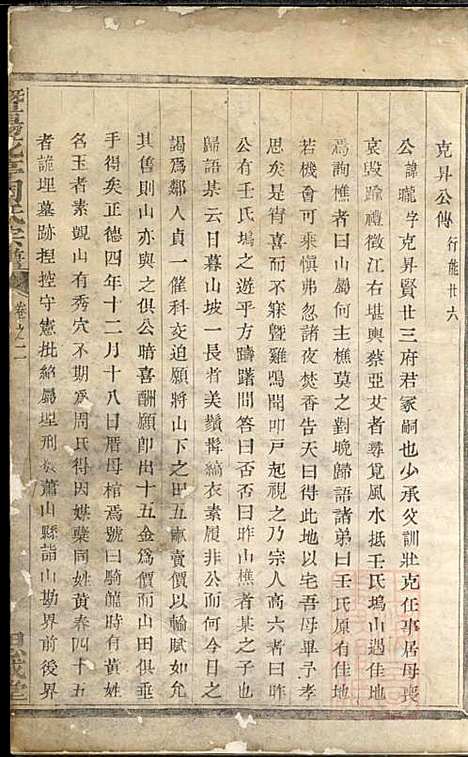 克昇公傳 行能廿六
公諱曨字克昇賢廿三府君冢嗣也少承父訓壯克任事居母喪
哀毀踰禮徵江右堪輿蔡亞艾者尋覓風水抵王氏塢山遇佳地
爲詢樵者曰山屬何主樵莫之對晚歸語諸弟曰王氏原有佳地
若機會可乘愼弗忽諸夜焚香告天曰得此地以宅吾母畢予孝
思矣是宵喜而不寐曁雞鳴聞叩戸起視之乃宗人高六者曰昨
公有王氏塢之遊乎方躊躇間答曰否否曰昨山樵者某之子也
歸語某云日暮山坡一長者美鬚髯縞衣素履非公而何今日之
謁爲鄰人貞一催科交迫願將山下之田五畝賣價以輸賦如允
其售則山亦與之俱公暗喜酬願卽出十五金爲價而山田俱垂
手得矣正德四年十二月十八日厝母棺焉號曰騎龍時有黃姓
名玉者素覬山有秀穴不期承周氏得因媒蘖同姓黃春四十五
者詭埋墓跡捏控守憲批紹屬理刑 蕭山縣詣山勘界前後界
周氏宗譜 卷之二 思誠堂